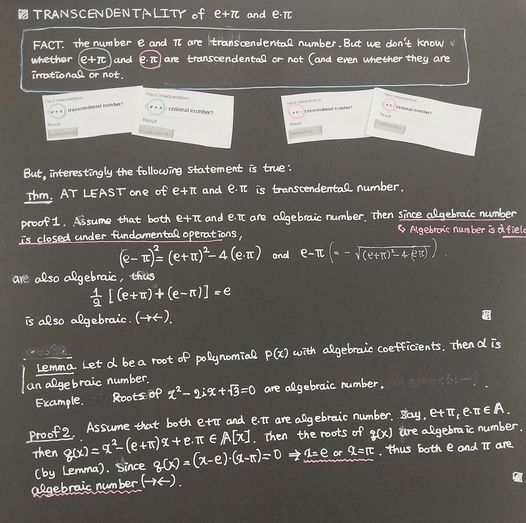 TRANSCENDENTALITY of e+π and e·π
FACT. the number e and π are transcendental number. But we don't know
whether e+π and e·π are transcendental or not (and even whether they are
irrational or not.
Input interpretation
e+π transcendental number?
Result
Input interpretation
rational number?
Result
Input interpretation
transcendental number?
Result
Input interpretation
rational number?
Result
But, interestingly the following statement is true:
Thm. AT LEAST one of e+π and e·π is transcendental number.
proof 1. Assume that both e+π and e·π are algebraic number, then since algebraic number
is closed under fundamental operations,
↳ Algebraic number is a field
(e-π)²=(e+π)²-4(e·π) and e-π (= -√((e+π)²-4(eπ))).
are also algebraic, thus
½ [(e+π)+(e-π)] = e
is also algebraic. (→←).
Lemma. Let α be a root of polynomial p(x) with algebraic coefficients. Then α is
an algebraic number.
Example. Roots of x²-2ix+√3=0 are algebraic number.
Proof 2. Assume that both e+π and e·π are algebraic number, say, e+π, e·π ∈ A.
Then q(x)=x²-(e+π)x+e·π ∈ A[x]. Then the roots of q(x) are algebraic number.
(by Lemma). Since q(x)=(x-e)·(x-π)=0 ⇒ x=e or x=π. Thus both e and π are
algebraic number (→←).